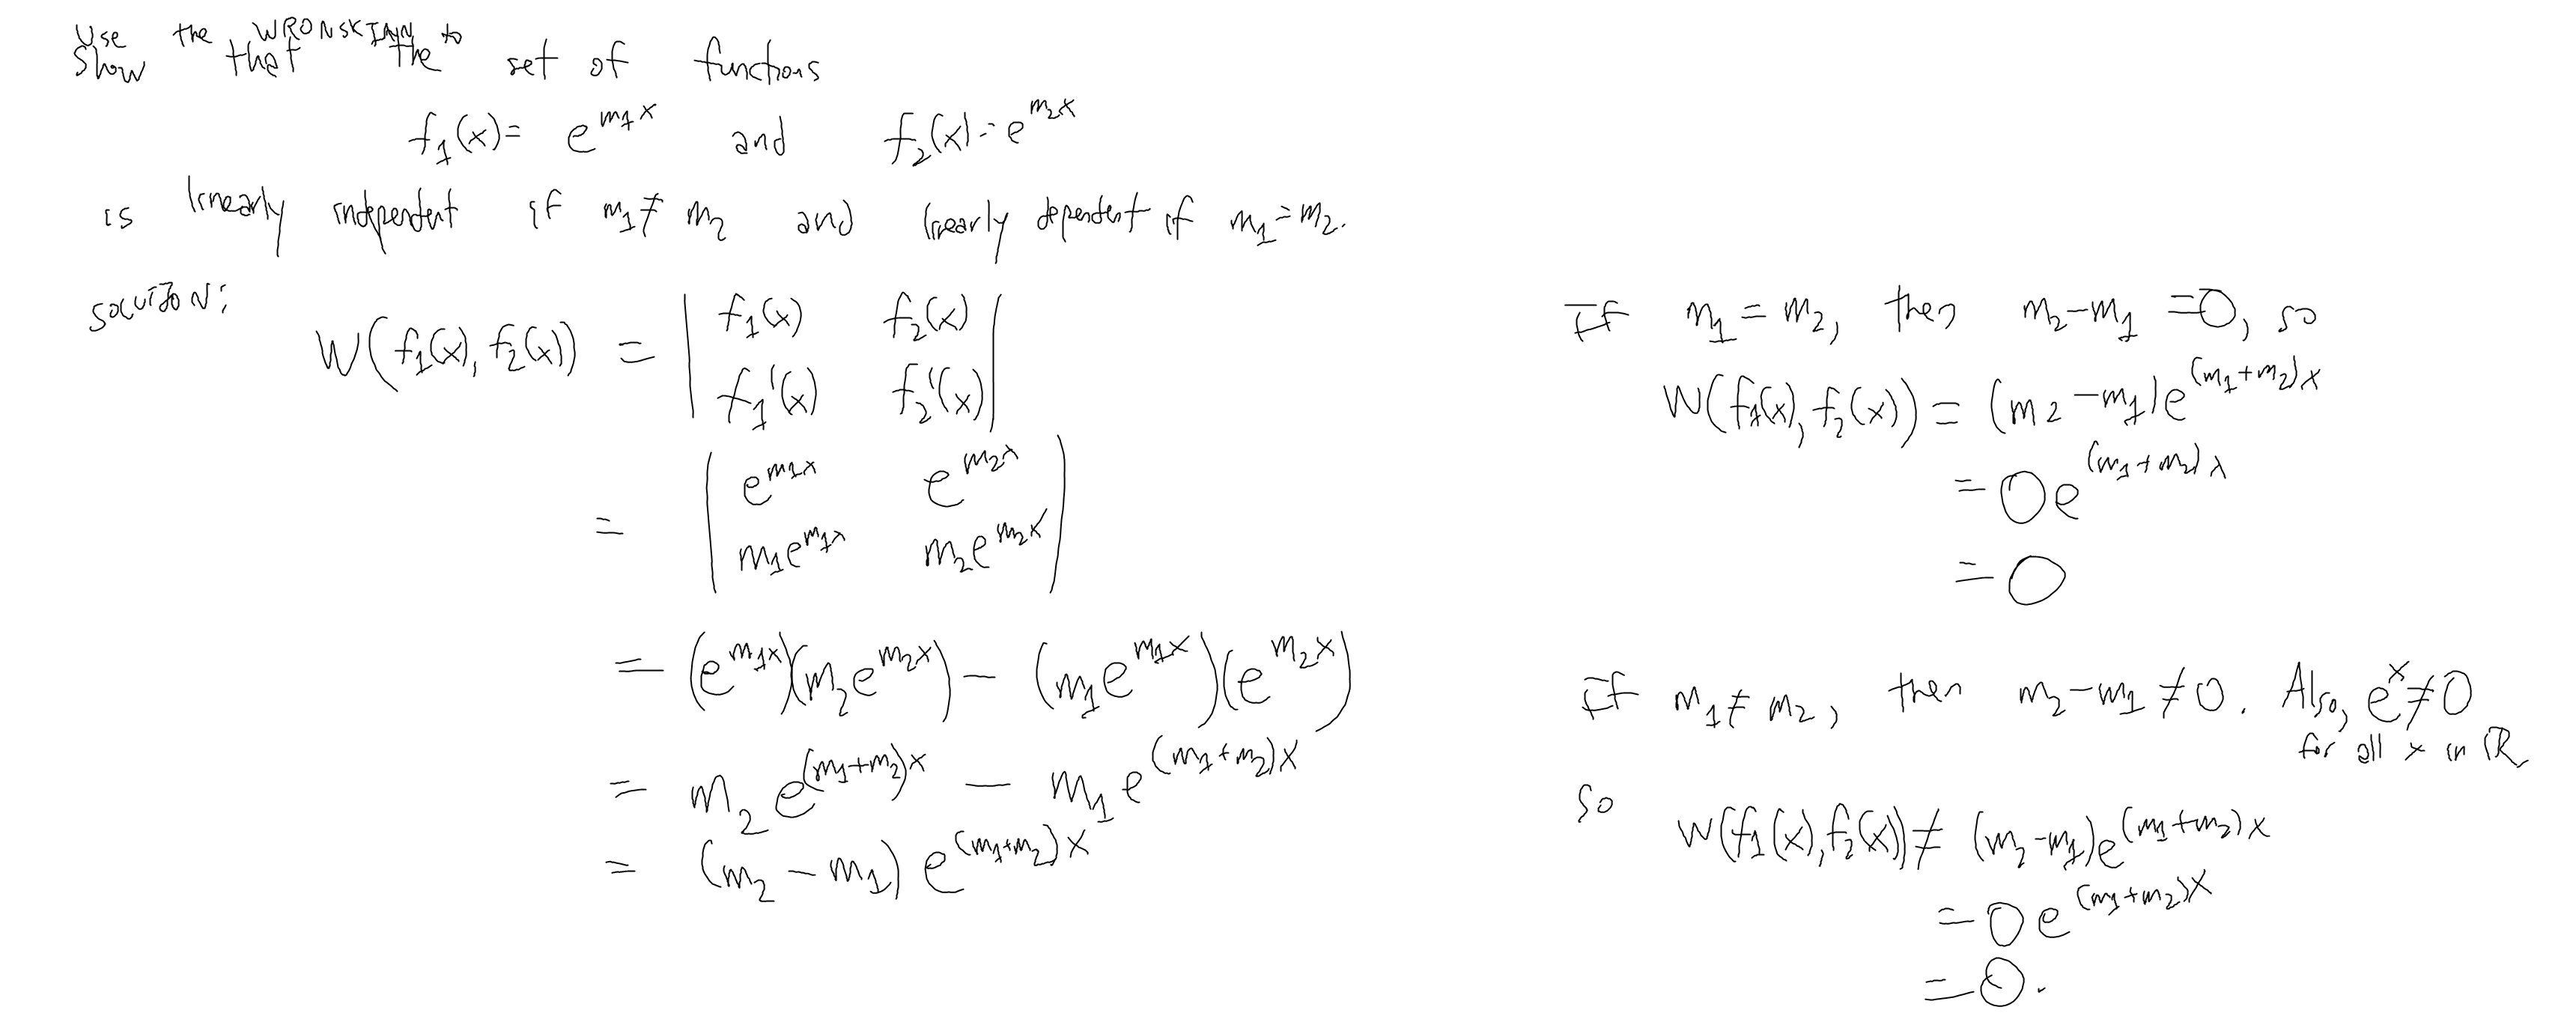 Use the WRONSKIAN to
Show that the set of functions
f₁(x)= e^{m₁x} and f₂(x)=e^{m₂x}
is linearly independent if m₁≠ m₂ and linearly dependent if m₁=m₂.
SOLUTION:
W(f₁(x), f₂(x)) = | f₁(x) f₂(x) |
| f₁'(x) f₂'(x) |
= | e^{m₁x} e^{m₂x} |
| m₁e^{m₁x} m₂e^{m₂x} |
= (e^{m₁x})(m₂e^{m₂x}) - (m₁e^{m₁x})(e^{m₂x})
= m₂ e^{(m₁+m₂)x} - m₁ e^{(m₁+m₂)x}
= (m₂ - m₁) e^{(m₁+m₂)x}
If m₁ = m₂, then m₂-m₁ =0, so
W(f₁(x), f₂(x)) = (m₂ -m₁)e^{(m₁+m₂)x}
= 0e^{(m₁+m₂)x}
= 0
If m₁≠ m₂, then m₂-m₁ ≠0. Also, e^x≠0
for all x in ℝ
so
W(f₁(x), f₂(x)) ≠ (m₂-m₁)e^{(m₁+m₂)x}
= 0e^{(m₁+m₂)x}
= 0.